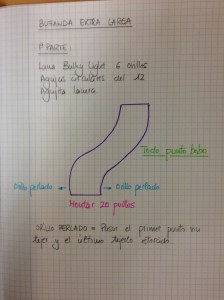 BUFANDA EXTRA LARGA
1ª PARTE:
Lana Bulky Light 6 ovillos
Agujas circulares del 12
Aguja lanera.
Todo punto bobo
Orillo perlado
Orillo perlado
Montar 20 puntos
ORILLO PERLADO = Pasar el primer punto sin
tejer y el último tejerlo retorcido.